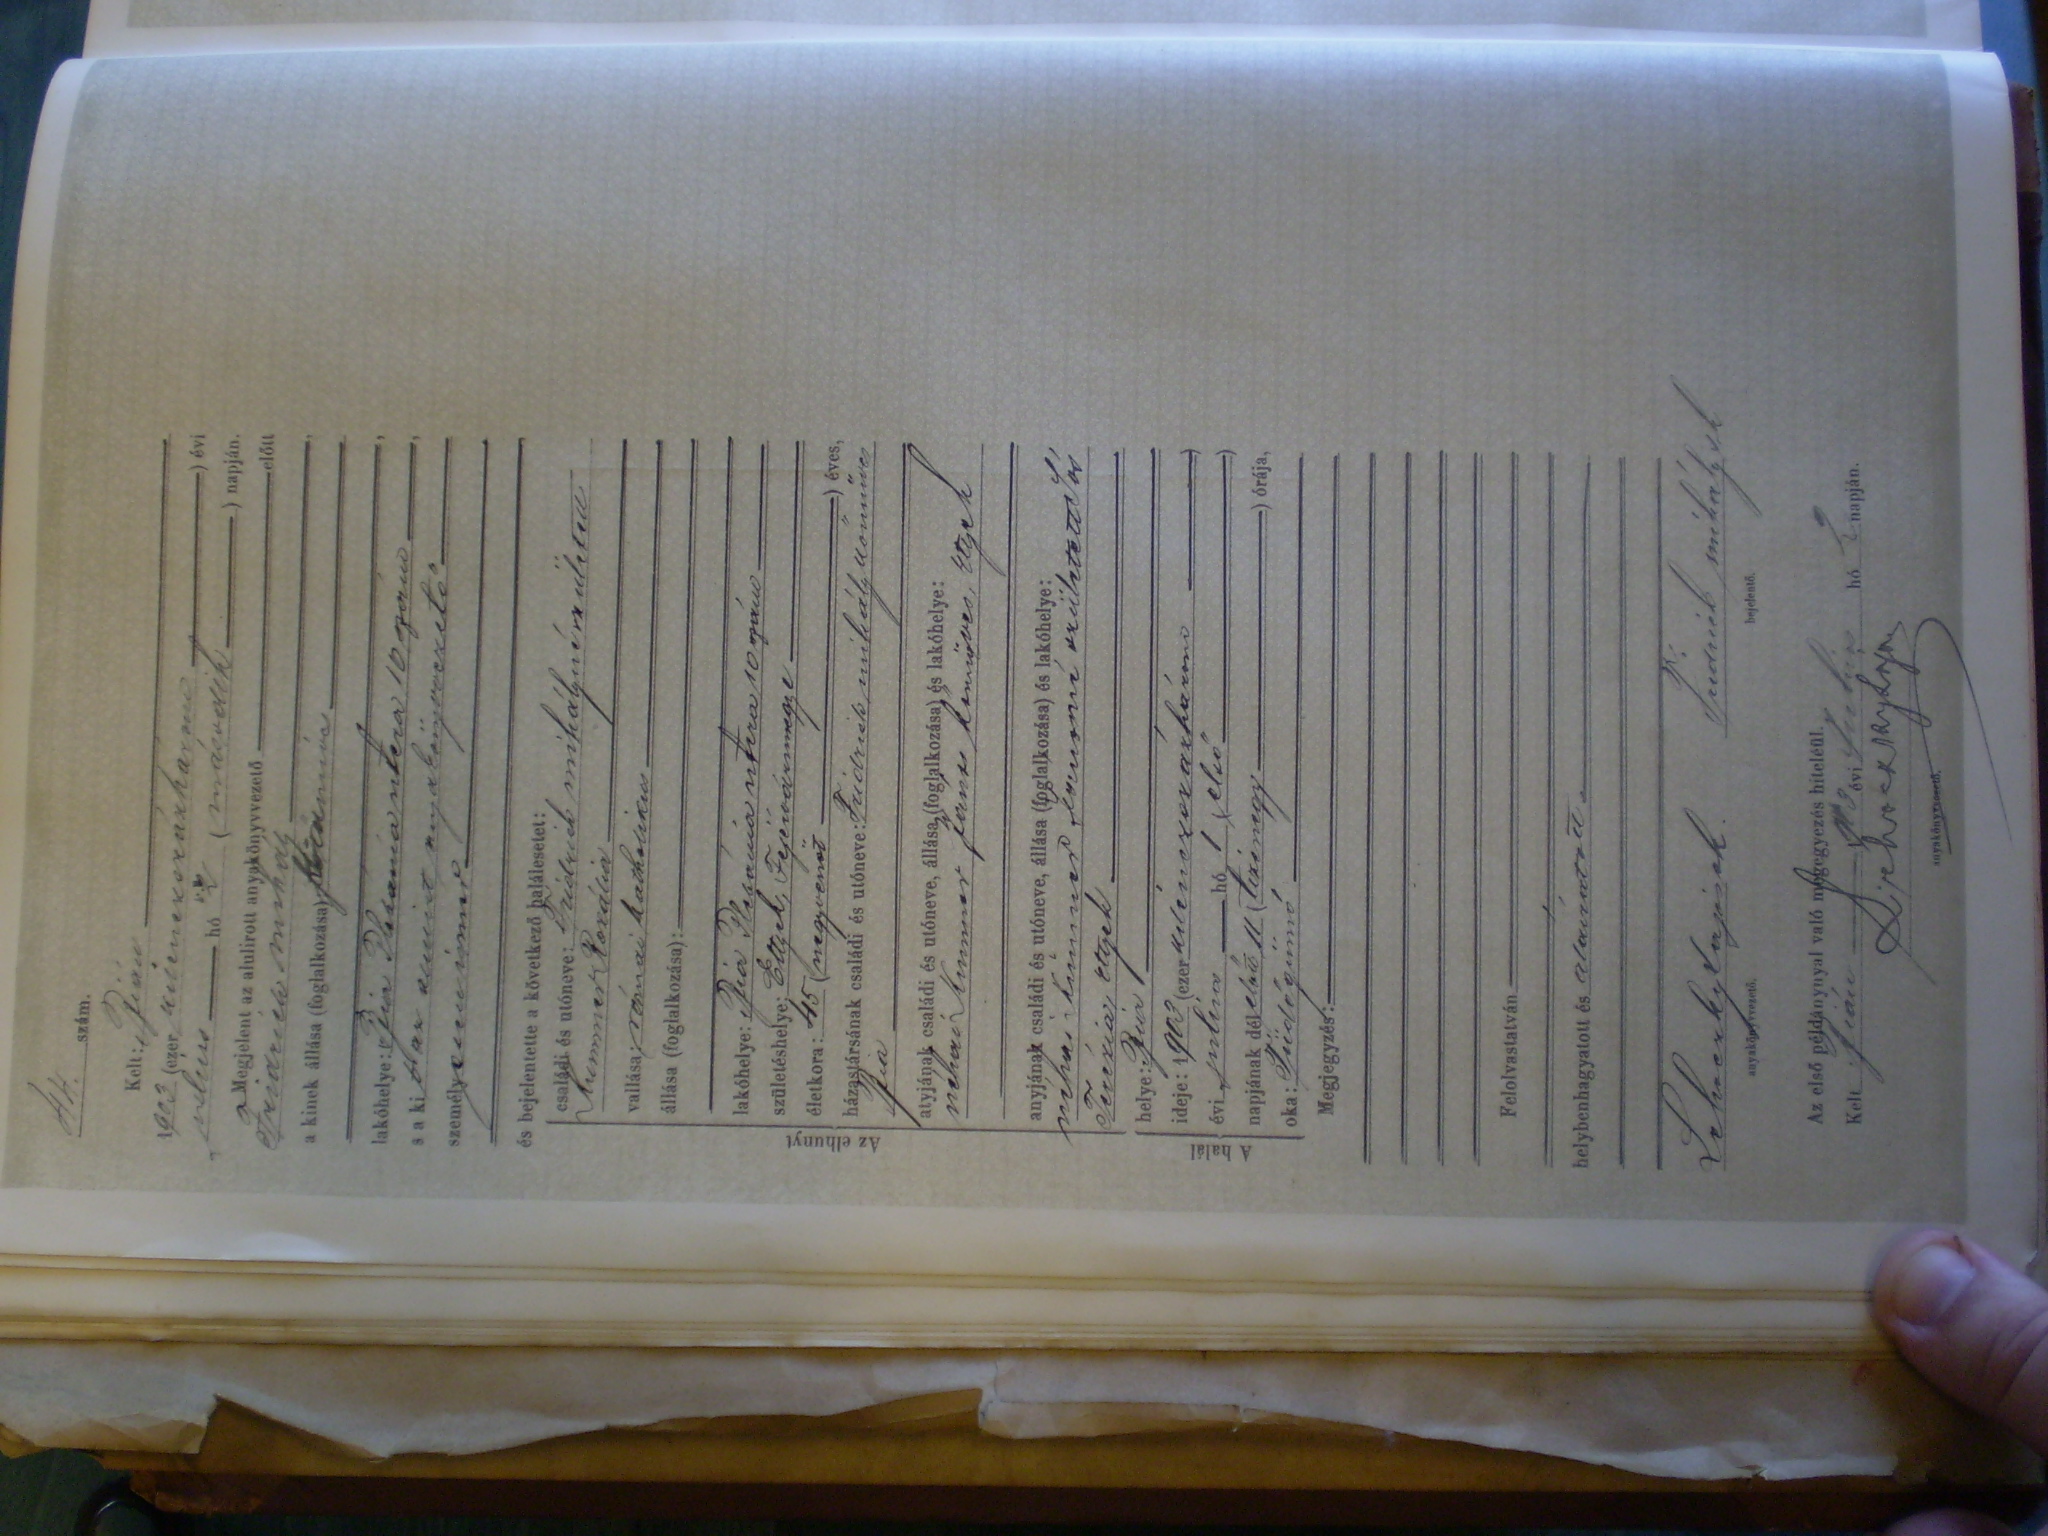 44. szám.
Kelt: Bián
1903 (ezer kilencszázhárom) évi
julius hó 2 (második) napján.
Megjelent az alulirott anyakönyvvezető előtt
Fridrich Mihály
a kinek állása (foglalkozása)
lakóhelye: Bia Plébánia utcza 10 szám
s a ki az anyakönyvvezető
személyesen ismer
és bejelentette a következő halálesetet:
Az elhunyt
családi és utóneve: Fridrich Mihályné született
Kummer Rozália
vallása: római katholikus
állása (foglalkozása):
lakóhelye: Bia Plébánia utcza 10 szám
születéshelye: Etyek, Fejérvármegye
életkora: 45 (negyvenöt) éves,
házastársának családi és utóneve: Fridrich Mihály kőműves
Bia
atyjának családi és utóneve, állása (foglalkozása) és lakóhelye:
néhai Kummer János kőműves, Etyek
anyjának családi és utóneve, állása (foglalkozása) és lakóhelye:
néhai Kummer Jánosné született
Terézia, Etyek
A halál
helye: Bia
ideje: 1903 (ezer kilencszázhárom)
évi julius hó 1 (első)
napjának dél előtt 11 (tizenegy) órája,
oka: Tüdőgümő
Megjegyzés:
Felolvastatván
helybenhagyatott és aláiratott.
Fridrich Mihály
anyakönyvvezető. bejelentő.
Az első példánynyal való megegyezés hiteléül.
Kelt Bián 1903 évi julius hó 2 napján.
anyakönyvvezető.